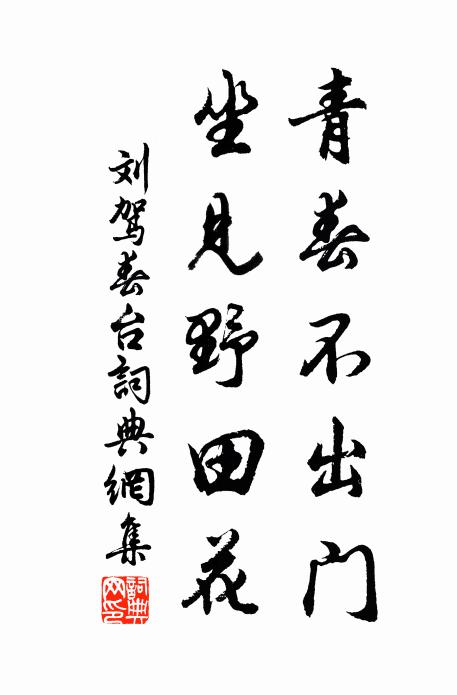 青春不出门
坐见野田花
刘驾春台詞典網集
詞典网印